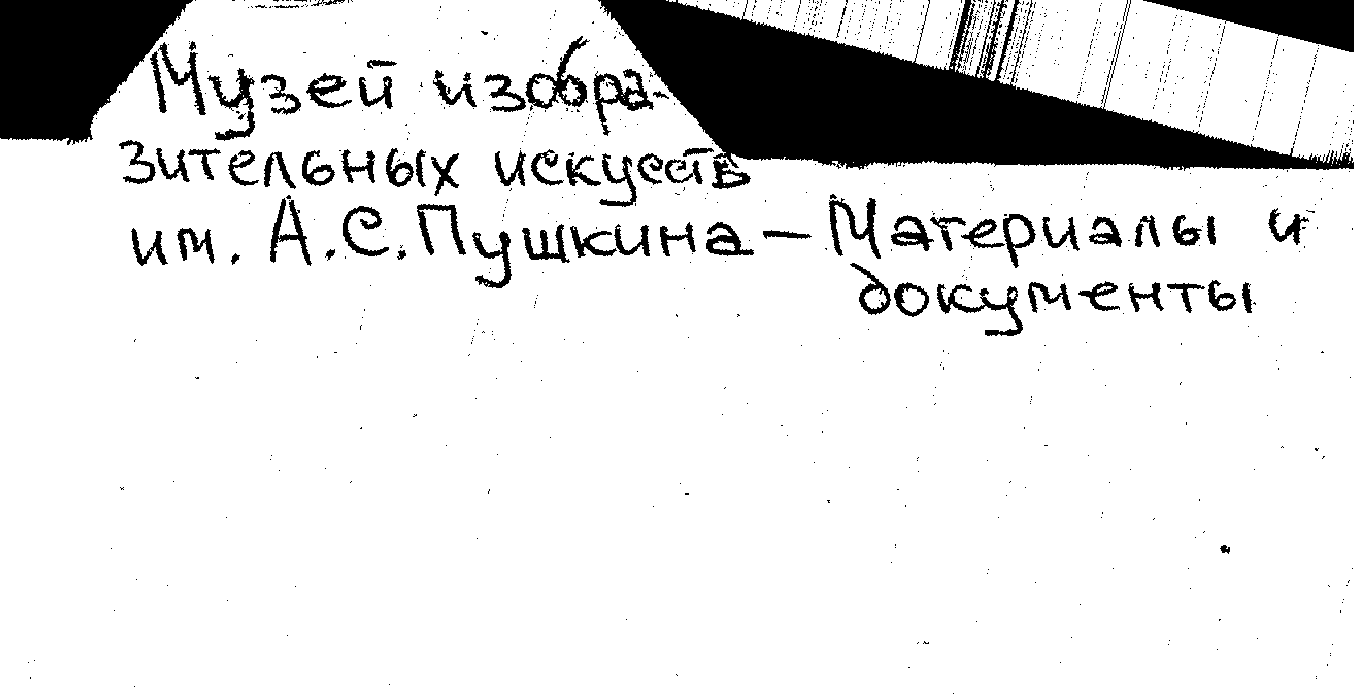 Музей изобра-
зительных искусств
им. А.С.Пушкина — Материалы и
документы